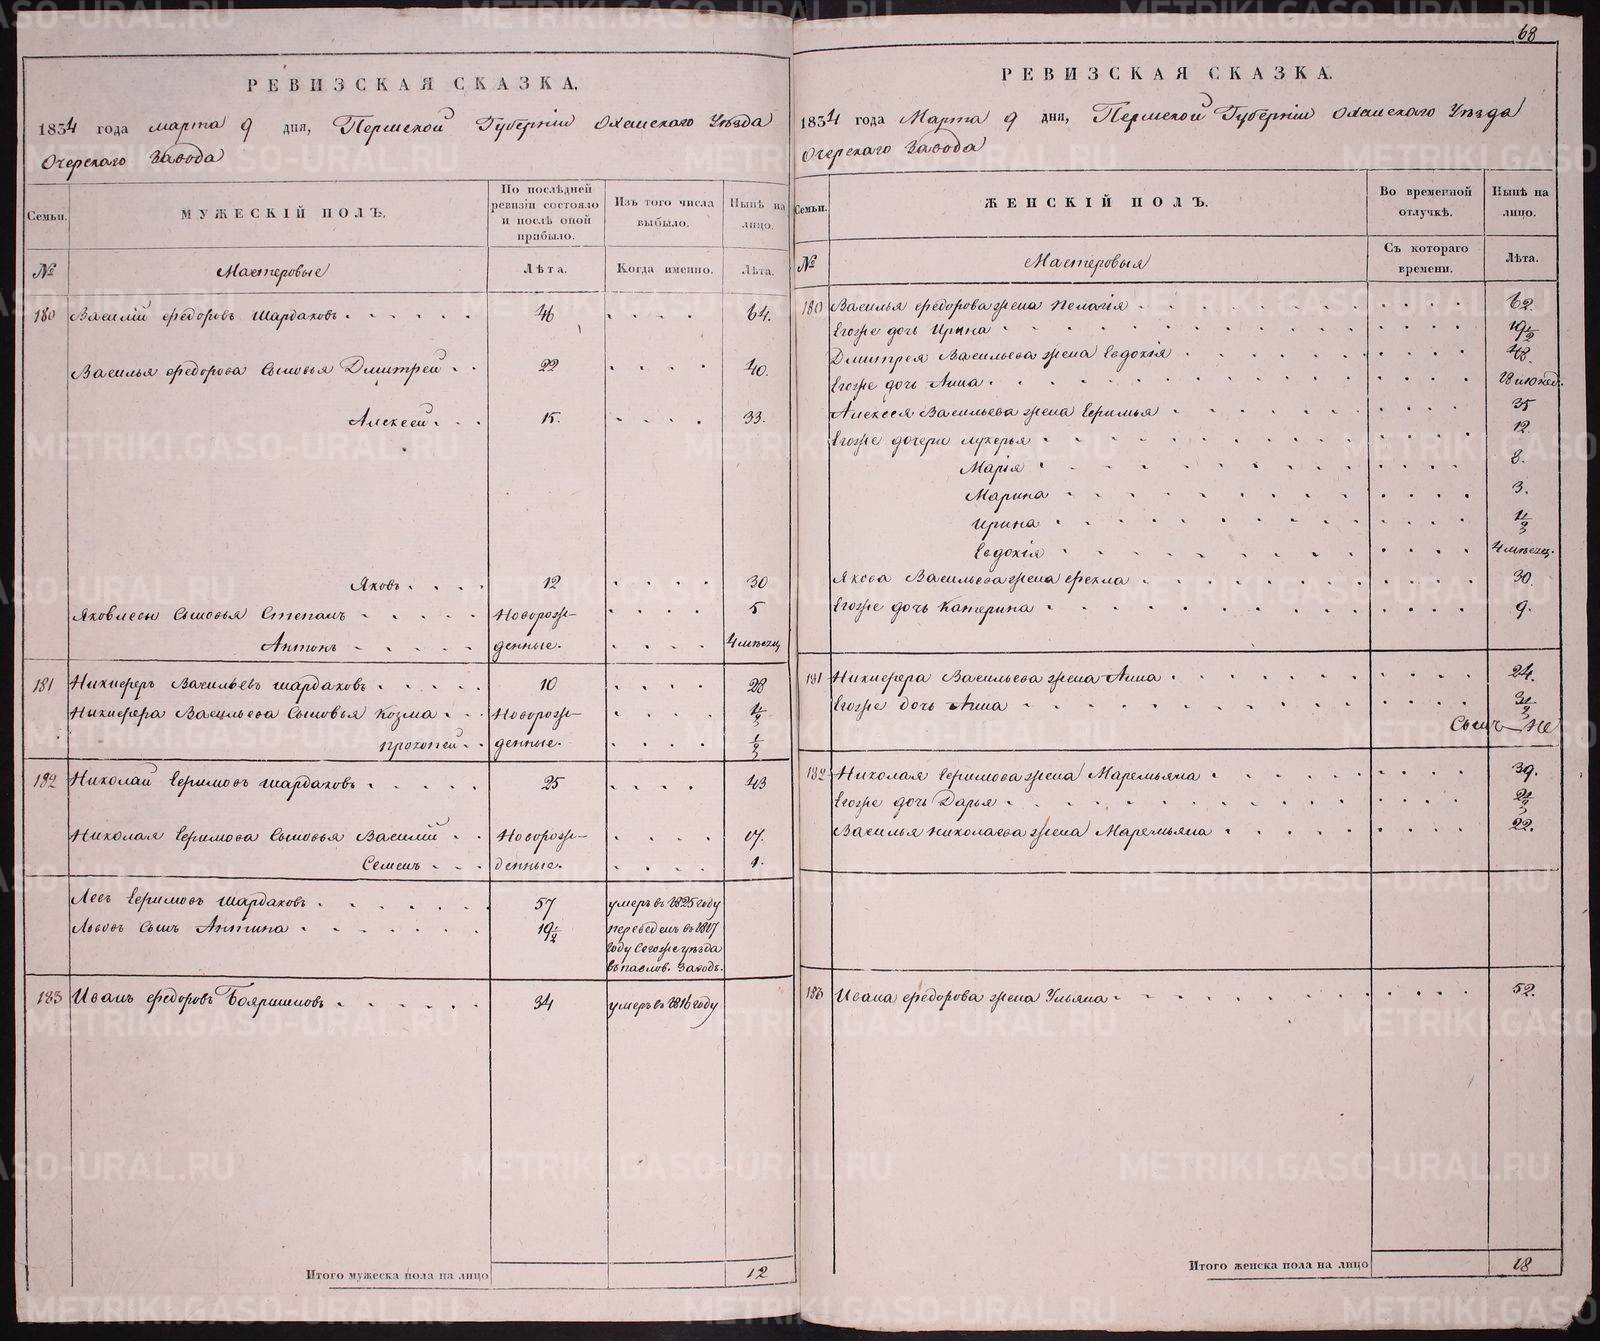 РЕВИЗСКАЯ СКАЗКА.
1834 года марта 9 дня, Пермской Губерніи Оханскаго Уѣзда
Очерскаго Завода
Семьи.
МУЖЕСКІЙ ПОЛЪ.
По послѣдней ревизіи состояло и послѣ оной прибыло.
Изъ того числа выбыло.
Нынѣ на лицо.
№
Мастеровые
Лѣта.
Когда именно.
Лѣта.
180 Василій Федоровъ Шардаковъ 46 64.
Василья Федорова сыновья Дмитрей 22 40.
Алексей 15. 33.
Яковъ 12 30
Яковлевы сыновья Степанъ Новорож- 5
Антонъ денные. 4 мѣсец
181 Никиферъ Васильевъ Шардаковъ 10 28
Никифера Васильева сыновья Козма Новорож-
Прокопей денные. 1/2
182 Николай Ефимовъ Шардаковъ 25 43
Николая Ефимова сыновья Василій Новорож- 17.
Семенъ денные. 1.
Левъ Ефимовъ Шардаковъ 57 умеръ въ 1825 году
Львовъ сынъ Антипа 19 1/2 переведенъ въ 1817
году сегоже уѣзда
въ Павлов. Заводъ.
183 Иванъ Федоровъ Бояршиновъ 34 умеръ въ 1816 году
Итого мужеска пола на лицо 12
68
РЕВИЗСКАЯ СКАЗКА.
1834 года Марта 9 дня, Пермской Губерніи Оханскаго Уѣзда
Очерскаго Завода
Семьи.
ЖЕНСКІЙ ПОЛЪ.
Во временной отлучкѣ.
Нынѣ на лицо.
№
Мастеровыя
Съ котораго времени.
Лѣта.
180 Василья Федорова жена Пелагія 62.
Егоже дочь Ирина 19 1/2
Дмитрея Васильева жена Евдокія 48.
Егоже дочь Анна 18 и недел.
Алексея Васильева жена Ефимья 35
Егоже дочери Лукерья 12
Марія 8.
Марина 3.
Ирина
Евдокія 4 мѣсец.
Якова Васильева жена Фекла 30.
Егоже дочь Катерина 9.
181 Никифера Васильева жена Анна 24.
Егоже дочь Анна
182 Николая Ефимова жена Маремьяна 39.
Егоже дочь Дарья
Василья Николаева жена Маремьяна 22.
183 Ивана Федорова жена Ульяна 52.
Итого женска пола на лицо 18
METRIKI.GASO-URAL.RU